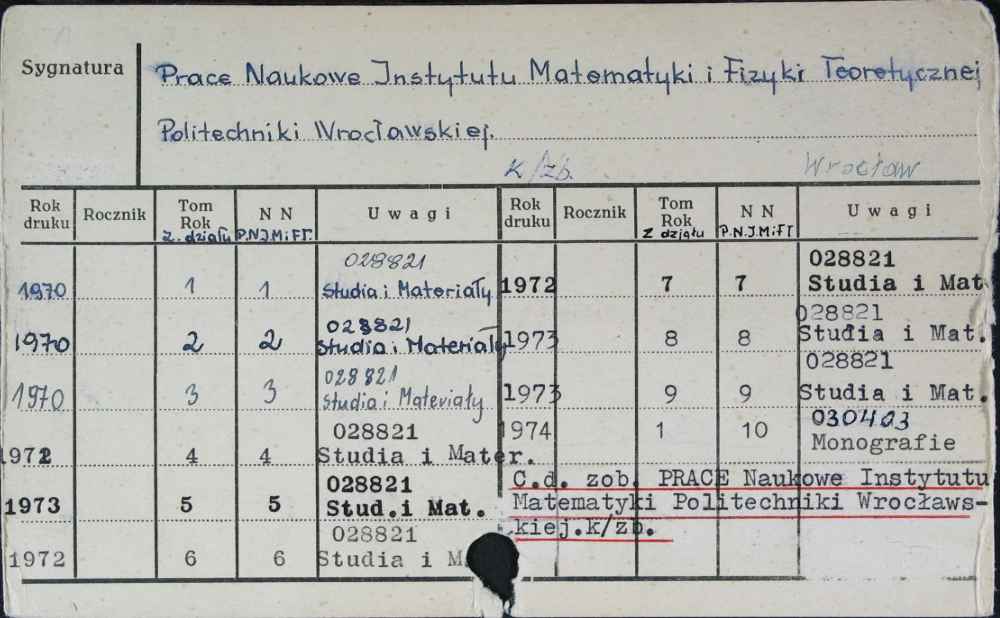 Sygnatura
Prace Naukowe Instytutu Matematyki i Fizyki Teoretycznej
Politechniki Wrocławskiej.
k/zb. Wrocław
Rok druku Rocznik Tom Rok z. działu N N P.N.I.M i F T. Uwagi
1970 1 1 028821 Studia i Materiały
1970 2 2 028821 Studia i Materiały
1970 3 3 028821 Studia i Materiały
1972 4 4 028821 Studia i Mater.
1973 5 5 028821 Stud.i Mat.
1972 6 6 028821 Studia i M
Rok druku Rocznik Tom Rok z działu N N P.N.I.M i F T Uwagi
1972 7 7 028821 Studia i Mat
1973 8 8 028821 Studia i Mat.
1973 9 9 028821 Studia i Mat.
1974 1 10 030403 Monografie
C.d. zob. PRACE Naukowe Instytutu
Matematyki Politechniki Wrocławs-
kiej.k/zb.